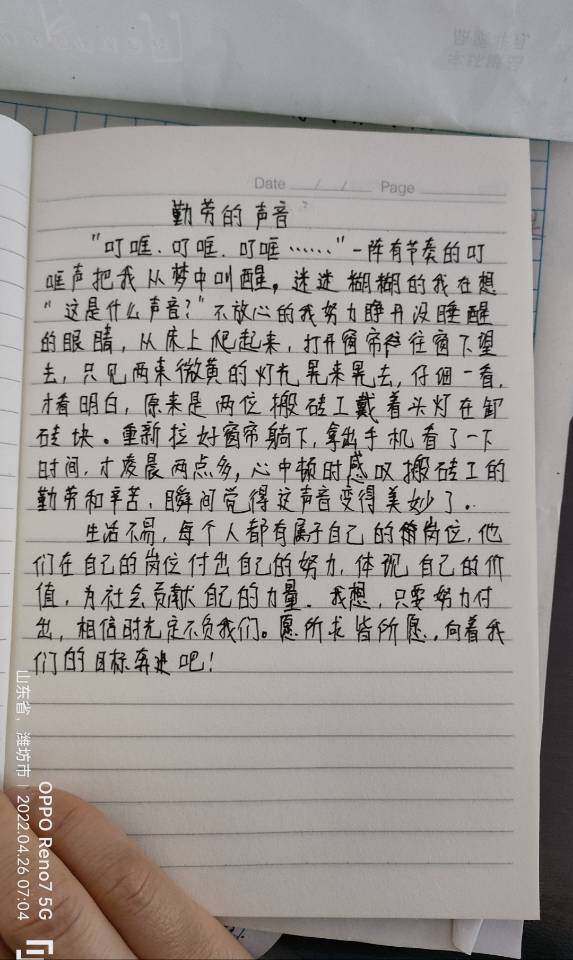 Date / / Page
勤劳的声音
"叮哐.叮哐.叮哐……"一阵有节奏的叮
哐声把我从梦中叫醒，迷迷糊糊的我在想
"这是什么声音?"不放心的我努力睁开没睡醒
的眼睛，从床上爬起来，打开窗帘往窗下望
去，只见两束微黄的灯光晃来晃去，仔细一看，
才看明白，原来是两位搬砖工戴着头灯在卸
砖块。重新拉好窗帘躺下，拿出手机看了一下
时间，才凌晨两点多，心中顿时感叹搬砖工的
勤劳和辛苦，瞬间觉得这声音变得美妙了。
生活不易，每个人都有属于自己的岗位，他
们在自己的岗位付出自己的努力，体现自己的价
值，为社会贡献自己的力量．我想，只要努力付
出，相信时光定不负我们。愿所求皆所愿，向着我
们的目标奔进吧！
山东省，潍坊市 | 2022.04.26 07:04
OPPO Reno7 5G